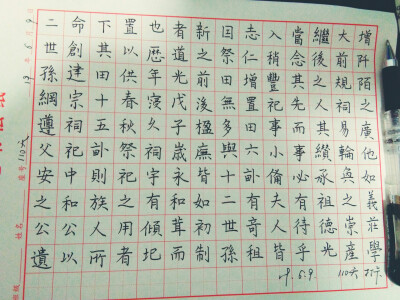 19.6.9
座号 110天
姓名
二世孫綱遵父安之公遺
命創建宗祠祀中和公以
下其田十五畝則族人所
置以供春秋祭祀之用者
也歷年寖久祠宇有傾圮
者道光戊子歲永和葺而
新之前後楹廡皆如初制
因祭田無多與十二世孫
志仁增置田六畝有奇租
入稍豐祀事小備夫人皆
當念其先而事必有待乎
繼後之人其纘承祖德光
大前規祠易輪奐之崇產
增阡陌之廣他如義莊學
19.6.9
110天